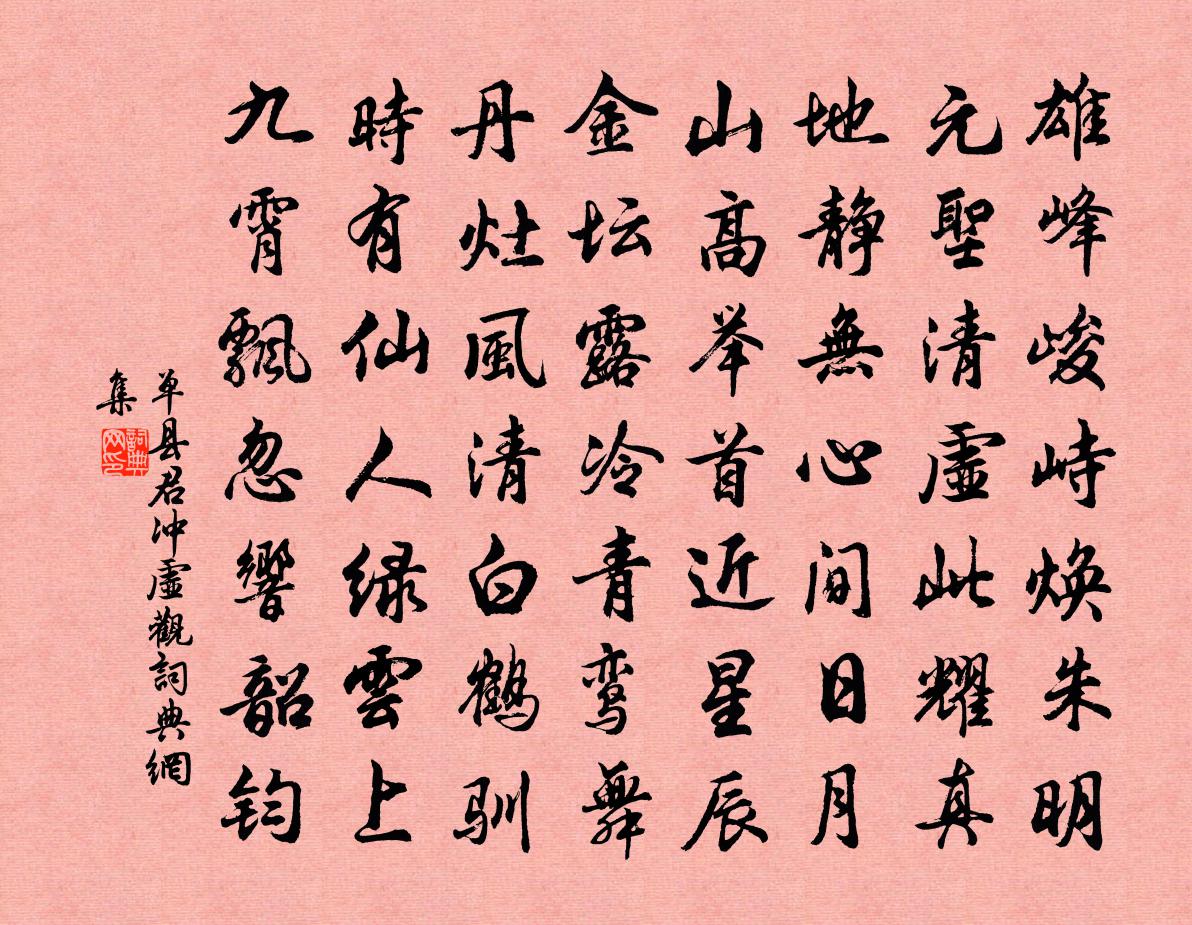 雄峰峻峙焕朱明
元聖清虛此耀真
地靜無心間日月
山高举首近星辰
金坛露冷青鸾舞
丹灶風清白鶴驯
時有仙人绿雲上
九霄飄忽響韶钧
单县君冲虛觀詞典網
集
詞典網印